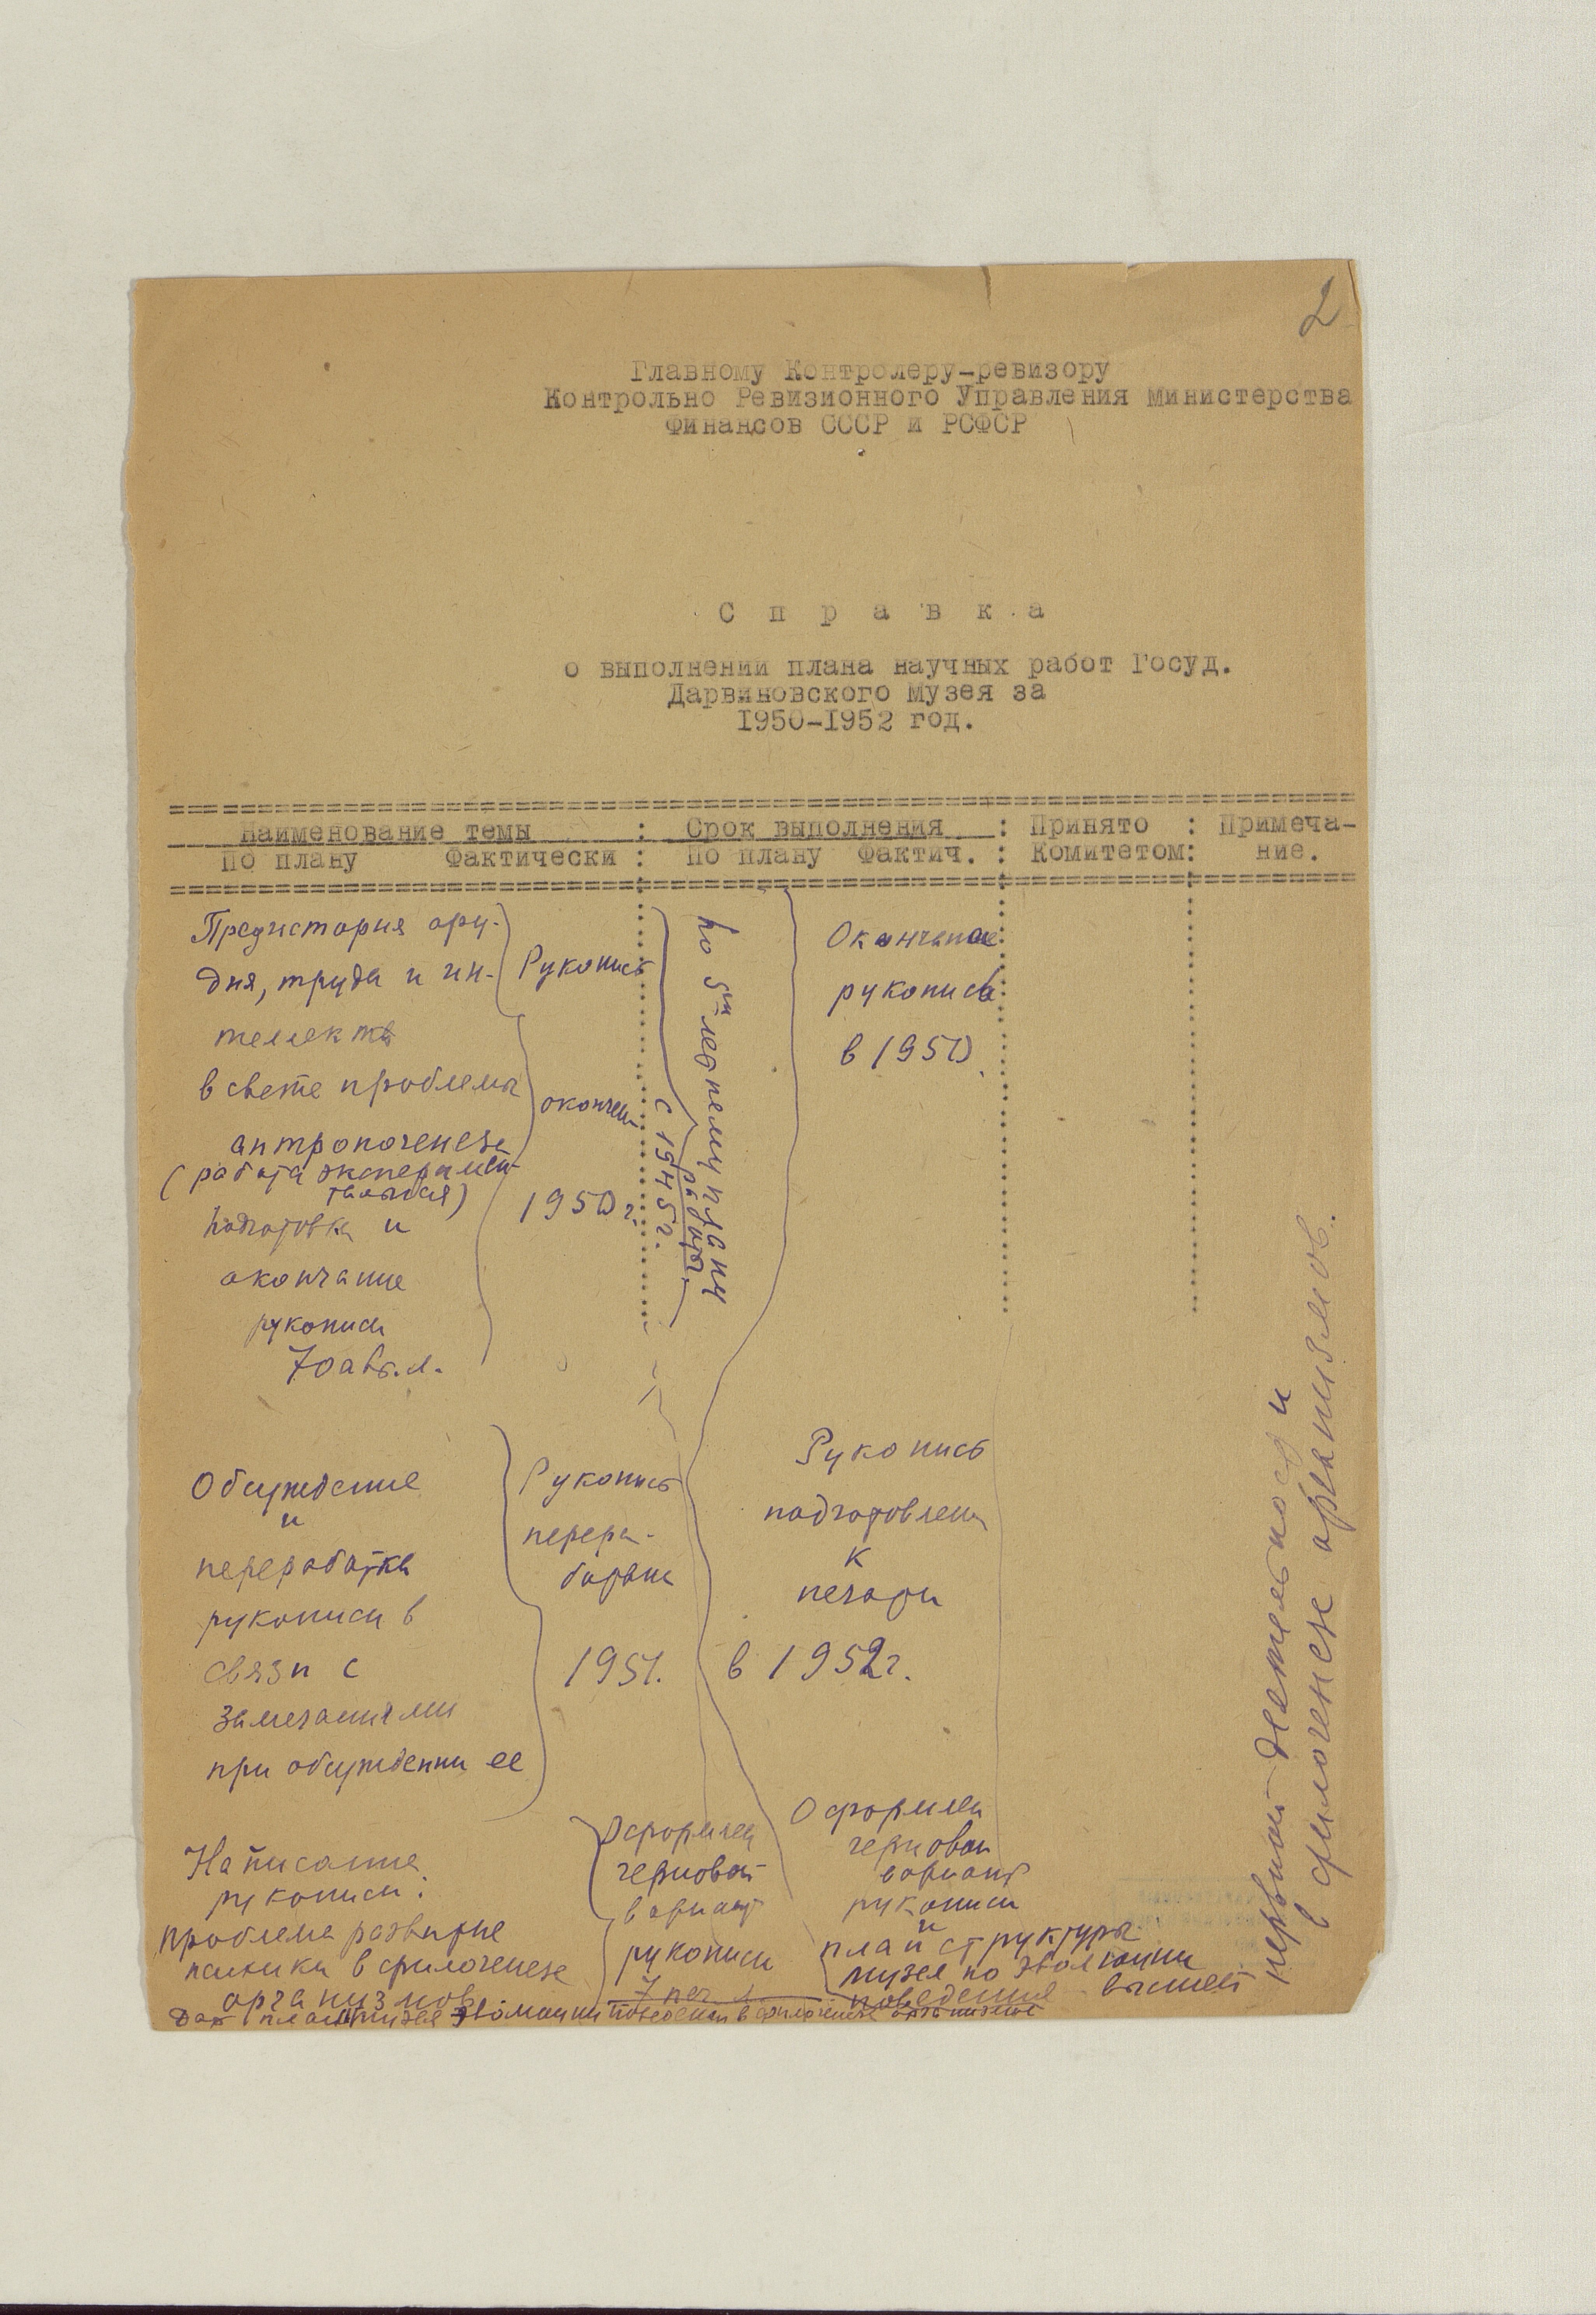 2
Главному Контролеру-ревизору
Контрольно Ревизионного Управления Министерства
Финансов СССР и РСФСР
С п р а в к а
о выполнении плана научных работ Госуд.
Дарвиновского Музея за
1950-1952 год.
Наименование темы : Срок выполнения : Принято : Примеча-
По плану Фактически : По плану Фактич. : Комитетом: ние.
Предистория ору-
дия, труда и ин-
теллекта
в свете проблемы
антропогенеза
(работа эксперимен-
тальная)
подготовка и
окончание
рукописи
70 авт. л.
Рукопись
окончена
1950 г.
с 1945 г.
по 5ти летнему плану
работы
Окончание
рукописи
в 1950
Обсуждение
и
переработка
рукописи в
связи с
замечаниями
при обсуждении ее
Рукопись
перера-
ботана
1951.
Рукопись
подготовлена
к
печати
в 1952 г.
Написание
рукописи:
проблема развития
психики в филогенезе
организмов
Оформлен
черновой
вариант
рукописи
7 печ л
Оформлен
черновой
вариант
рукописи
и
план структуры
музея по эволюции
поведения высшей
нервной деятельности и
в филогенезе организмов.
Дан план музея эволюции поведения в филогенезе организмов